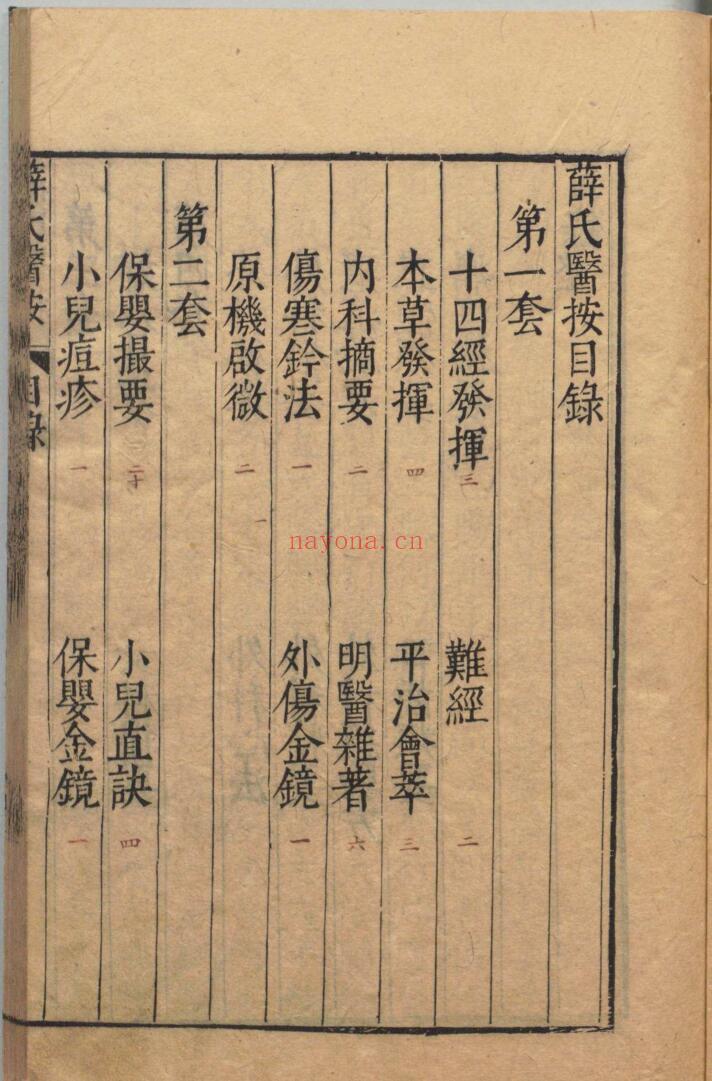 薛氏醫按目錄
第一套
十四經發揮 三 難經 二
本草發揮 四 平治會萃 三
內科摘要 二 明醫雜著 六
傷寒鈐法 一 外傷金鏡 一
原機啟微 二
第二套
保嬰撮要 二十 小兒直訣 四
小兒痘疹 一 保嬰金鏡 一
薛氏醫按 目錄
nayona.cn